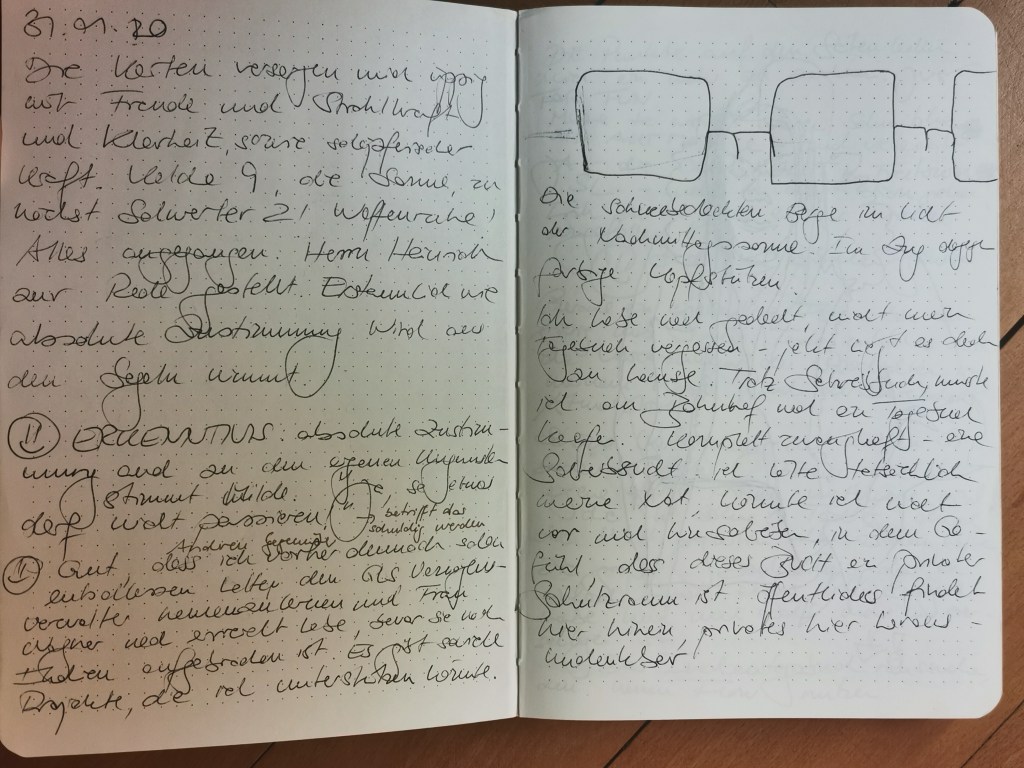 31.01.20
Die Karten versorgen mich üppig
mit Freude und Strahlkraft
und Klarheit, sowie schöpferischer
Kraft. Kelche 9, die Sonne, zu
nächst Schwerter 2! Waffenruhe!
Alles angegangen. Herrn Heinrich
zur Rede gestellt. Erstaunlich wie
absolute Zustimmung Wind aus
den Segeln nimmt.
II ERKENNTNIS: absolute Zustim-
mung auch zu dem eigenen
stimmt Milde. so etwas
darf nicht passieren!
betrifft das
schuldig werden
I Gut, dass ich vorher dennoch schon
den GLS
verwalter kennenlernen und Frau
Wagner noch erreicht habe, bevor sie nach
Indien aufgebrochen ist. Es gibt soviele
Projekte, die ich unterstützen könnte.
Die schneebedeckten Berge im Licht
der Nachmittagssonne. Im Zug
farbige Kopfstützen.
Ich habe noch gedacht, nicht mein
Tagebuch vergessen - jetzt liegt es doch
zu hause. Trotz musste
ich am Bahnhof noch ein Tagebuch
kaufen. Komplett zwanghaft - eine
ich litte tatsächlich
meine Not, könnte ich nicht
vor mich hinschreiben, in dem Ge-
fühl, dass dieses Buch ein privater
Schutzraum ist. Öffentliches findet
hier hinein, privates hier hinaus -
undenkbar